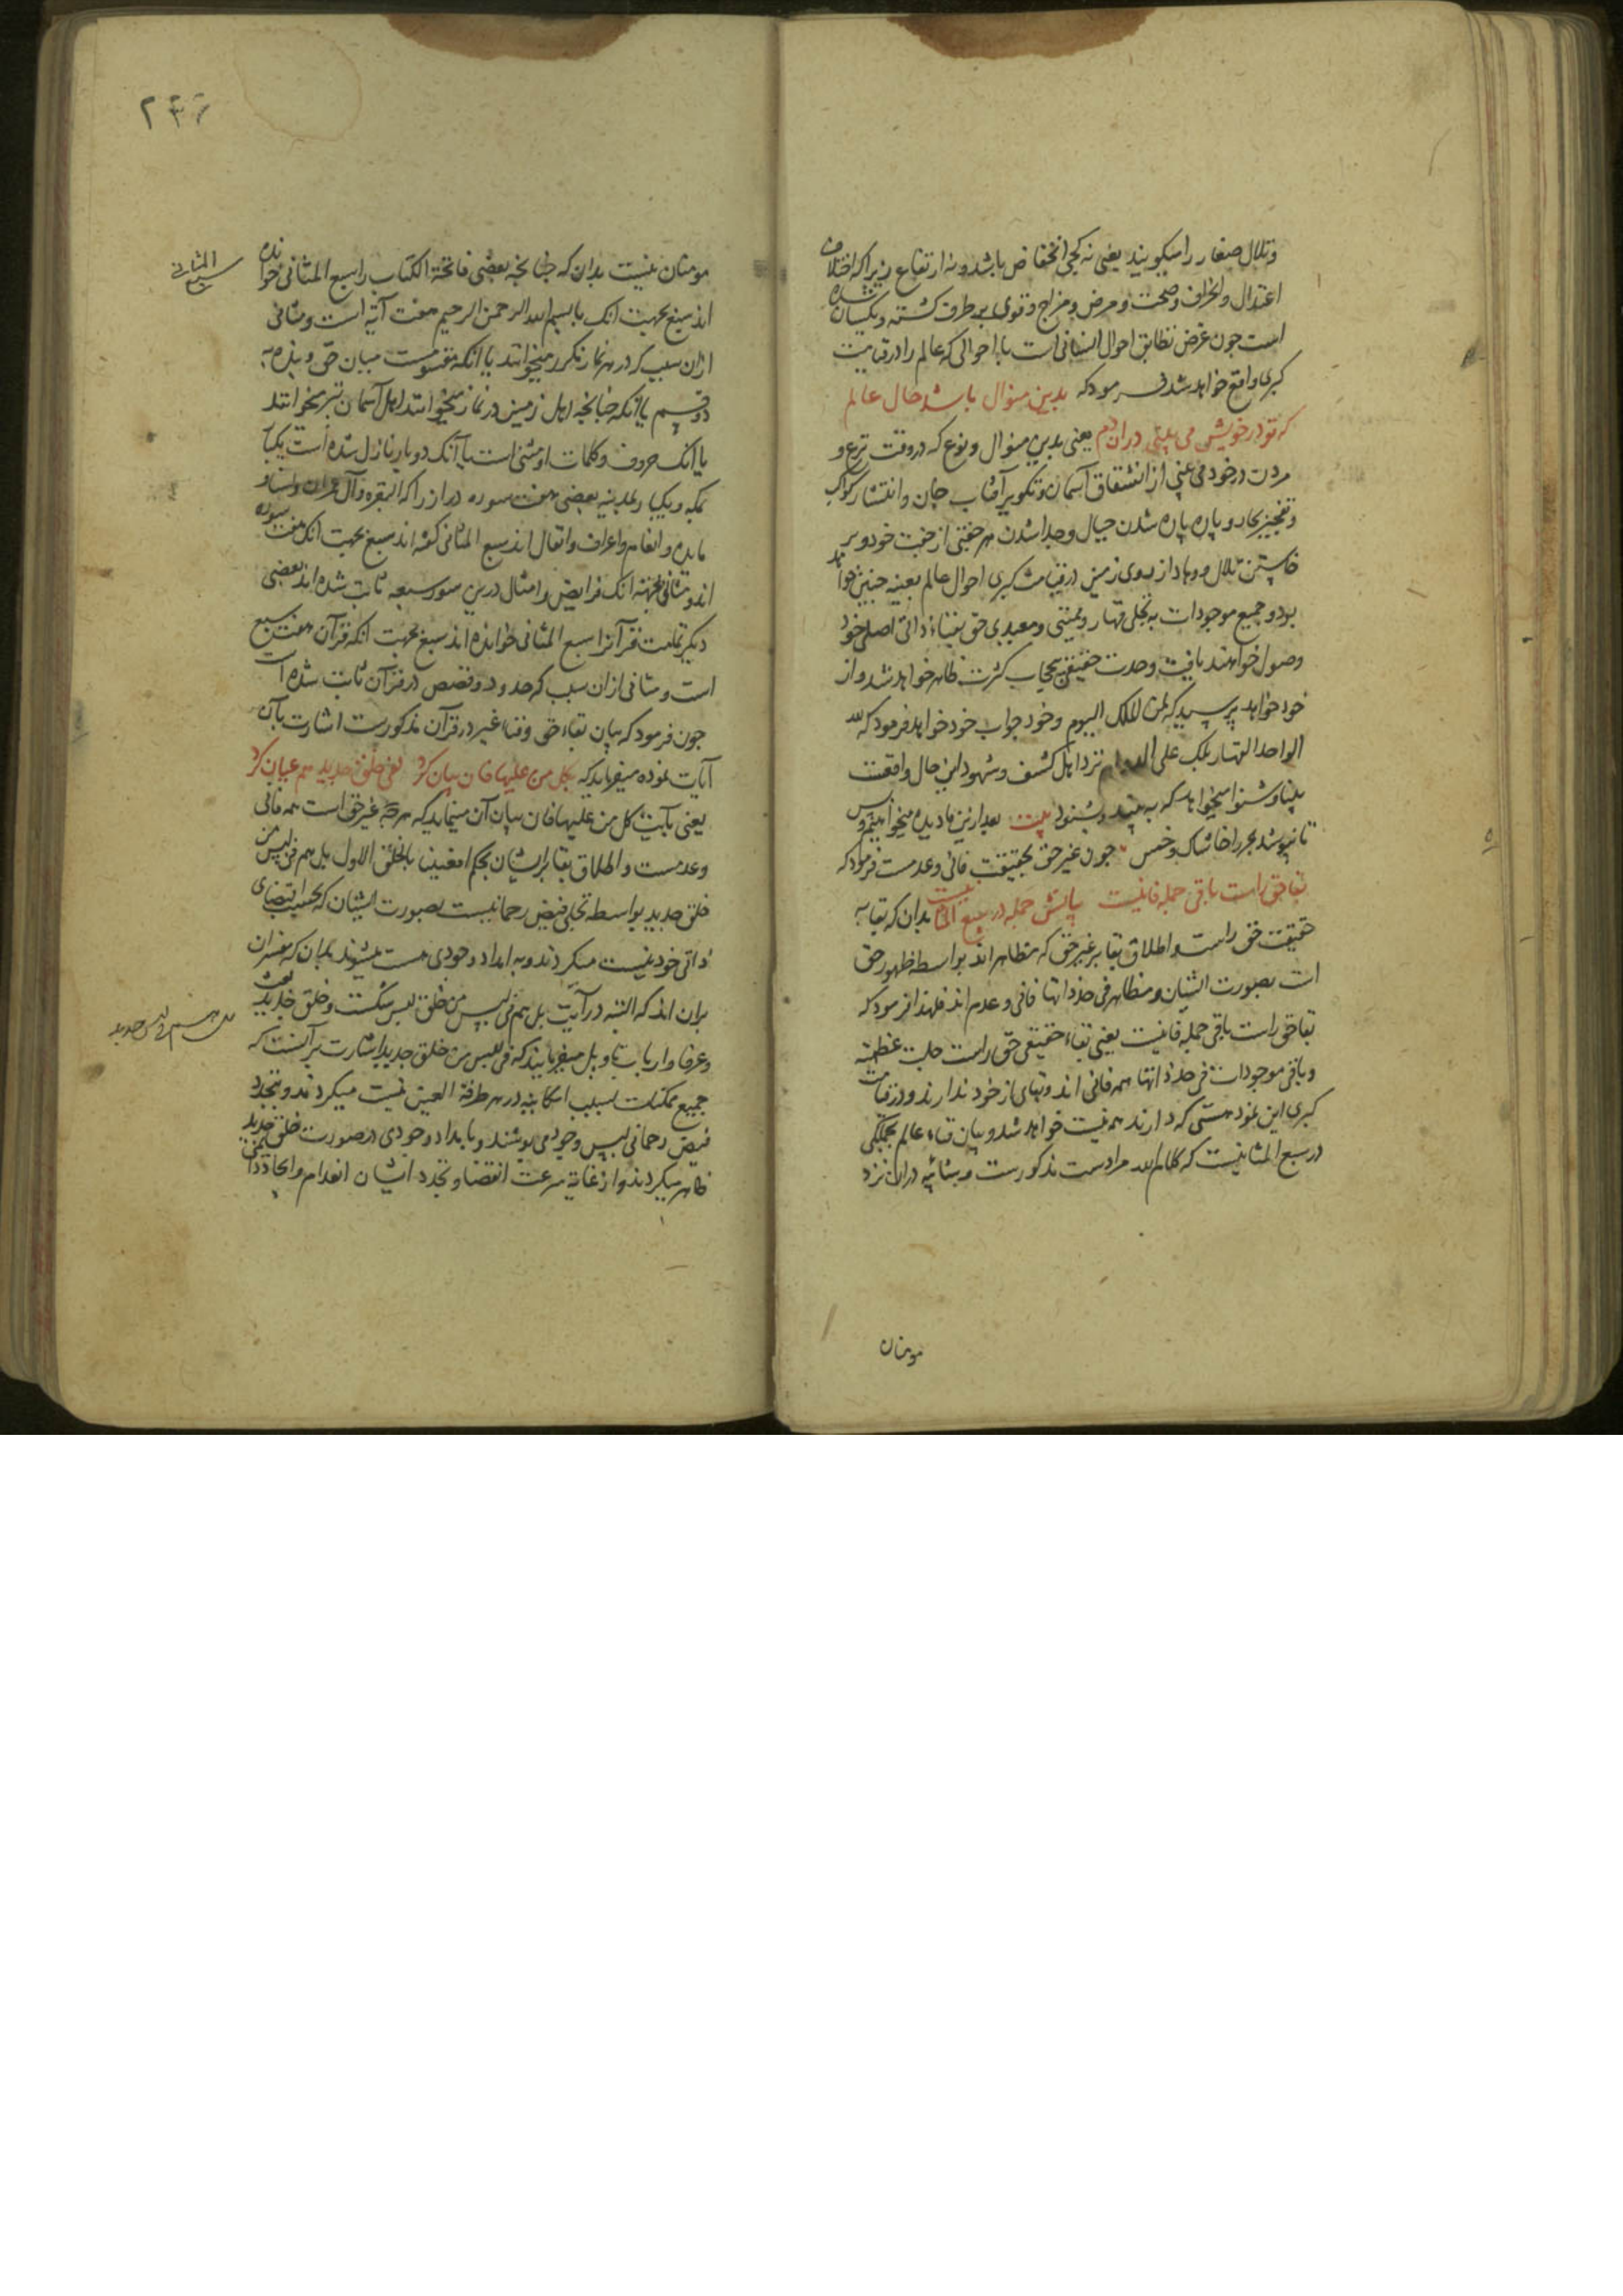 وتلال صغار را میگویند یعنی نه کجی انخفاض باشد و نه ارتفاع زیرا که اختلاف
اعتدال وانحراف وصحت و مرض و مزاج و قوی بر طرف کشته و یکسان شده
است جون غرض تطابق احوال انسانی است با احوالی که عالم را در قیامت
کبری واقع خواهد شد فرمود که بدین منوال باشد حال عالم
که تو در خویش می بینی در ان دم یعنی بدین منوال و نوع که در وقت نزع و
مردن در خود می بینی از انشقاق آسمان و تکویر آفتاب جان و انتشار کواکب
و تفجیر بحار و پاره پاره شدن جبال و جدا شدن هر جفتی از جفت خود و بر
خاستن تلال و وهاد از روی زمین در قیامت کبری احوال عالم بعینه جنین خواهد
بود و جمیع موجودات به تجلی قهار و ممیتی و معیدی حق بفناء ذاتی اصلی خود
وصول خواهند یافت و وحدت حقیقی بی حجاب کثرت ظاهر خواهد شد و از
خود خواهد پرسید که لمن الملک الیوم و خود جواب خود خواهد فرمود که لله
الواحد القهار بلک علی الدوام نزد اهل کشف و شهود این حال واقعست
بینا و شنوا میخواهد که به بیند و بشنود بیت بعد ازین ما دیده میخواهیم و بس
تا نپوشد بحر را خاشاک و خس جون غیر حق بحقیقت فانی و عدمست فرمود که
بقا حق راست باقی جمله فانیست بیانش جمله در سبع المثانیست بدان که بقا به
حقیقت حق راست و اطلاق بقا بر غیر حق که مظاهر اند بواسطه ظهور حق
است بصورت ایشان و مظاهر فی حد ذاتها فانی و عدم اند فلهذا فرمود که
بقا حق راست باقی جمله فانیست یعنی بقاء حقیقی حق راست جلت عظمته
و باقی موجودات فی حد ذاتها همه فانی اند و بقای از خود ندارند و در قیامت
کبری این نمود هستی که دارند هم نیست خواهد شد و بیان فناء عالم بجملگی
در سبع المثانیست که کلام الله مرادست مذکورست و بشائبه دران نزد
مومنان
۲۴۶
مومنان نیست بدان که جنانجه بعضی فاتحة الکتاب را سبع المثانی خوانده
سبع المثانی
اند سبع بجهت انک با بسم الله الرحمن الرحیم هفت آیه است و مثانی
ازان سبب که در هر نماز مکرر میخوانند یا انکه مقسومست میان حق و بنده به
دو قسم یا آنکه جنانجه اهل زمین در نماز میخوانند اهل آسمان نیز میخوانند
یا آنک حروف و کلمات او مثنی است یا آنک دو بار نازل شده است یکبار
بمکه و یکبار بمدینه بعضی هفت سوره دراز را که البقره و آل عمران و النساء و
مایده و انعام و اعراف و انفال اند سبع المثانی گفته اند سبع بجهت انک هفت سوره
اند و مثانی بجهت انک فرایض و امثال درین سور سبعه ثابت شده اند بعضی
دیکر تمامت قرآنرا سبع المثانی خوانده اند سبع بجهت انکه قرآن هفت سبع
است و مثانی ازان سبب که حدود و قصص در قرآن ثابت شده است
جون فرمود که بیان بقاء حق و فناء غیر در قرآن مذکورست اشارت بآن
آیات نموده میفرماید که بکل من علیها فان بیان کرد لفی خلق جدید هم عیان کرد
یعنی بآیت کل من علیها فان بیان آن مینماید که هرجه غیر حق است همه فانی
و عدمست و اطلاق بقا برایشان بحکم افعیینا بالخلق الاول بل هم فی لبس من
خلق جدید بواسطه تجلی فیض رحمانیست بصورت ایشان که بحسب اقتضای
ذاتی خود نیست میکردند و به امداد وجودی هست میشوند بدان که مفسران
بران اند که البته در آیت بل هم فی لبس من خلق لبس شکست و خلق جدید بعث
بل هم فی لبس من خلق جدید
و عرفا و ارباب تاویل میفرمایند که فی لبس من خلق جدید اشارت بر آنست که
جمیع ممکنات بسبب امکانیه در هر طرفة العین نیست میکردند و بتجدد
فیض رحمانی لبس وجود می پوشند و بامداد وجودی در صورت خلق جدید
ظاهر میکردند و از غایة سرعت انقضا و تجدد ایشان انعدام و ایجاد